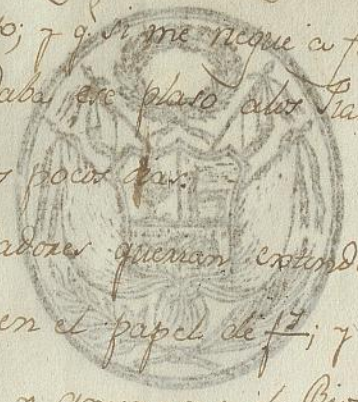 to; y q.e si me negue a f
daba ese plaso a los Tra
s pocos dias. -
adores querian extend
en el papel de ; y